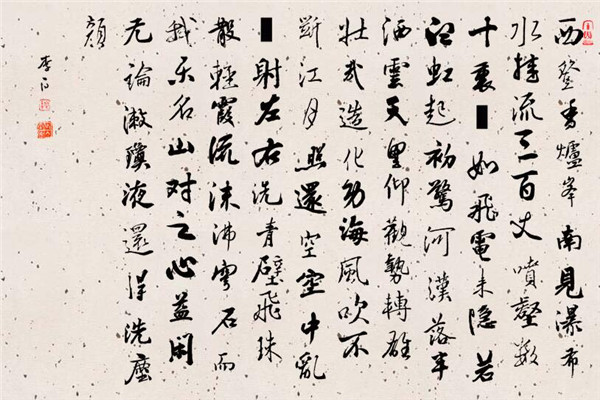 西登香爐峯南見瀑布
水掛流三百丈噴壑数
十裏如飛電来隐若
白虹起初驚河漢落半
洒雲天里仰觀勢轉雄
壮哉造化功海風吹不
斷江月照還空空中亂
射左右洗青壁飛珠
散輕霞流沫沸穹石而
我乐名山对之心益閑
无論漱瓊液還得洗塵
顔
李白